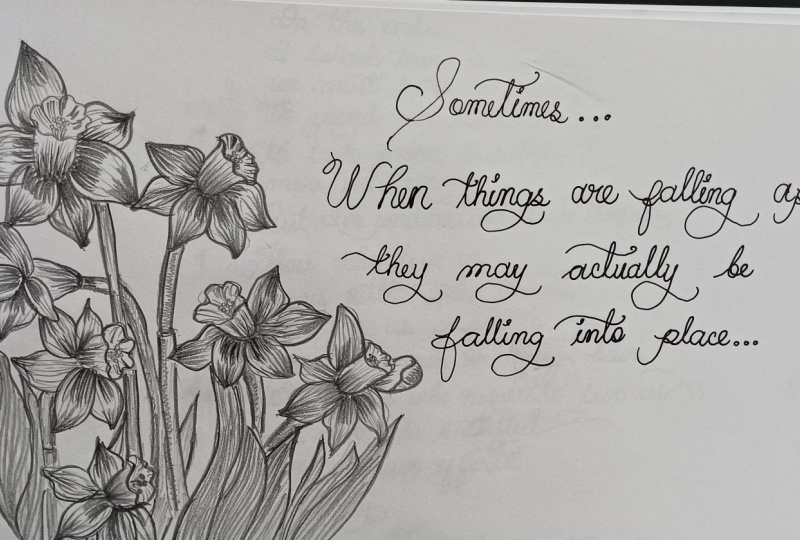 Sometimes...
When things are falling ap
they may actually be
falling into place...